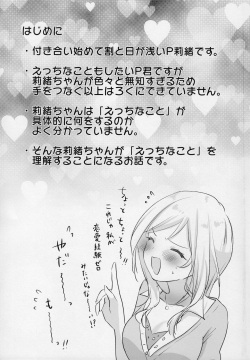 はじめに
・付き合い始めて割と日が浅いP莉緒です。
・えっちなこともしたいP君ですが
莉緒ちゃんが色々と無知すぎるため
手をつなぐ以上はろくにできていません。
・莉緒ちゃんは「えっちなこと」が
具体的に何をするのか
よく分かっていません。
・そんな莉緒ちゃんが「えっちなこと」を
理解することになるお話です。
ちょっとー
これじゃ私が
恋愛経験ゼロ
みたいじゃなーい
やだー